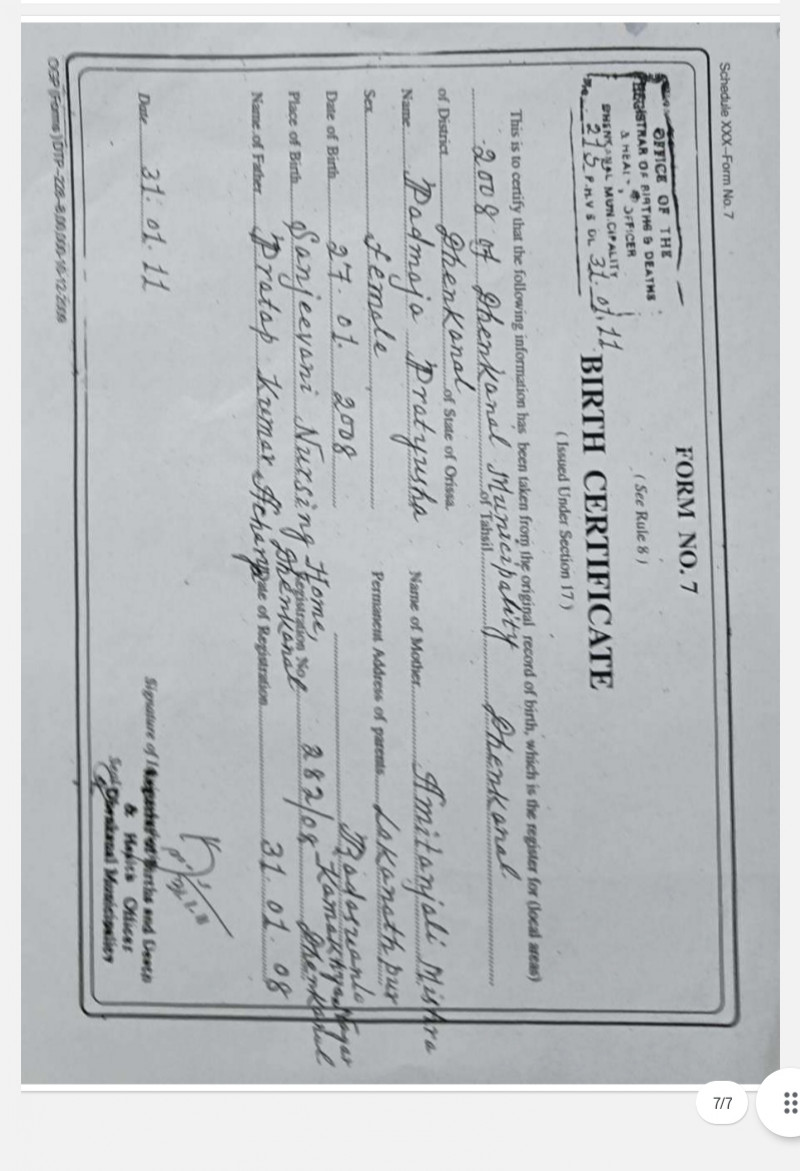 Schedule XXX-Form No. 7
OFFICE OF THE
REGISTRAR OF BIRTHS & DEATHS
& HEALTH OFFICER
DHENKANAL MUNICIPALITY
No. 275 P.H.V.S Dt. 31.01.11
FORM NO. 7
( See Rule 8 )
BIRTH CERTIFICATE
( Issued Under Section 17 )
This is to certify that the following information has been taken from the original record of birth, which is the register for (local areas)
2008 of Dhenkanal Municipality of Tahsil Dhenkanal
of District Dhenkanal of State of Orissa.
Name Padmaja Pratyusha Name of Mother Amitanjali Mishra
Sex Female Permanent Address of parents Lokanath pur
Date of Birth 27. 01. 2008 Kamakhyanagar
Place of Birth Sanjeevani Nursing Home, Dhenkanal Registration No. 282/08 Dhenkanal
Name of Father Pratap Kumar Acharya Date of Registration 31. 01. 08
Date 31. 01. 11
Signature of
Births and Death
& Health Officer
Seal Dhenkanal Municipality
OGP (Forms) DTP-228-8,00,000-16-12-2009
7/7